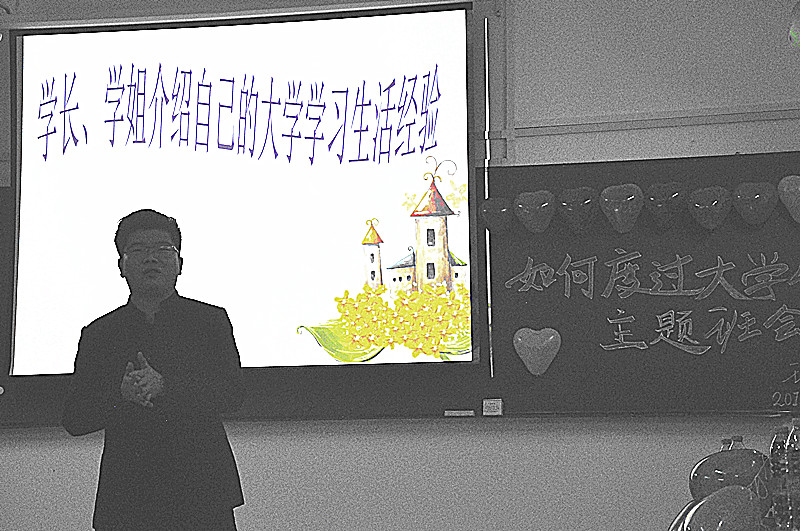 学长、学姐介绍自己的大学学习生活经验
如何度过大学
主题班会
201